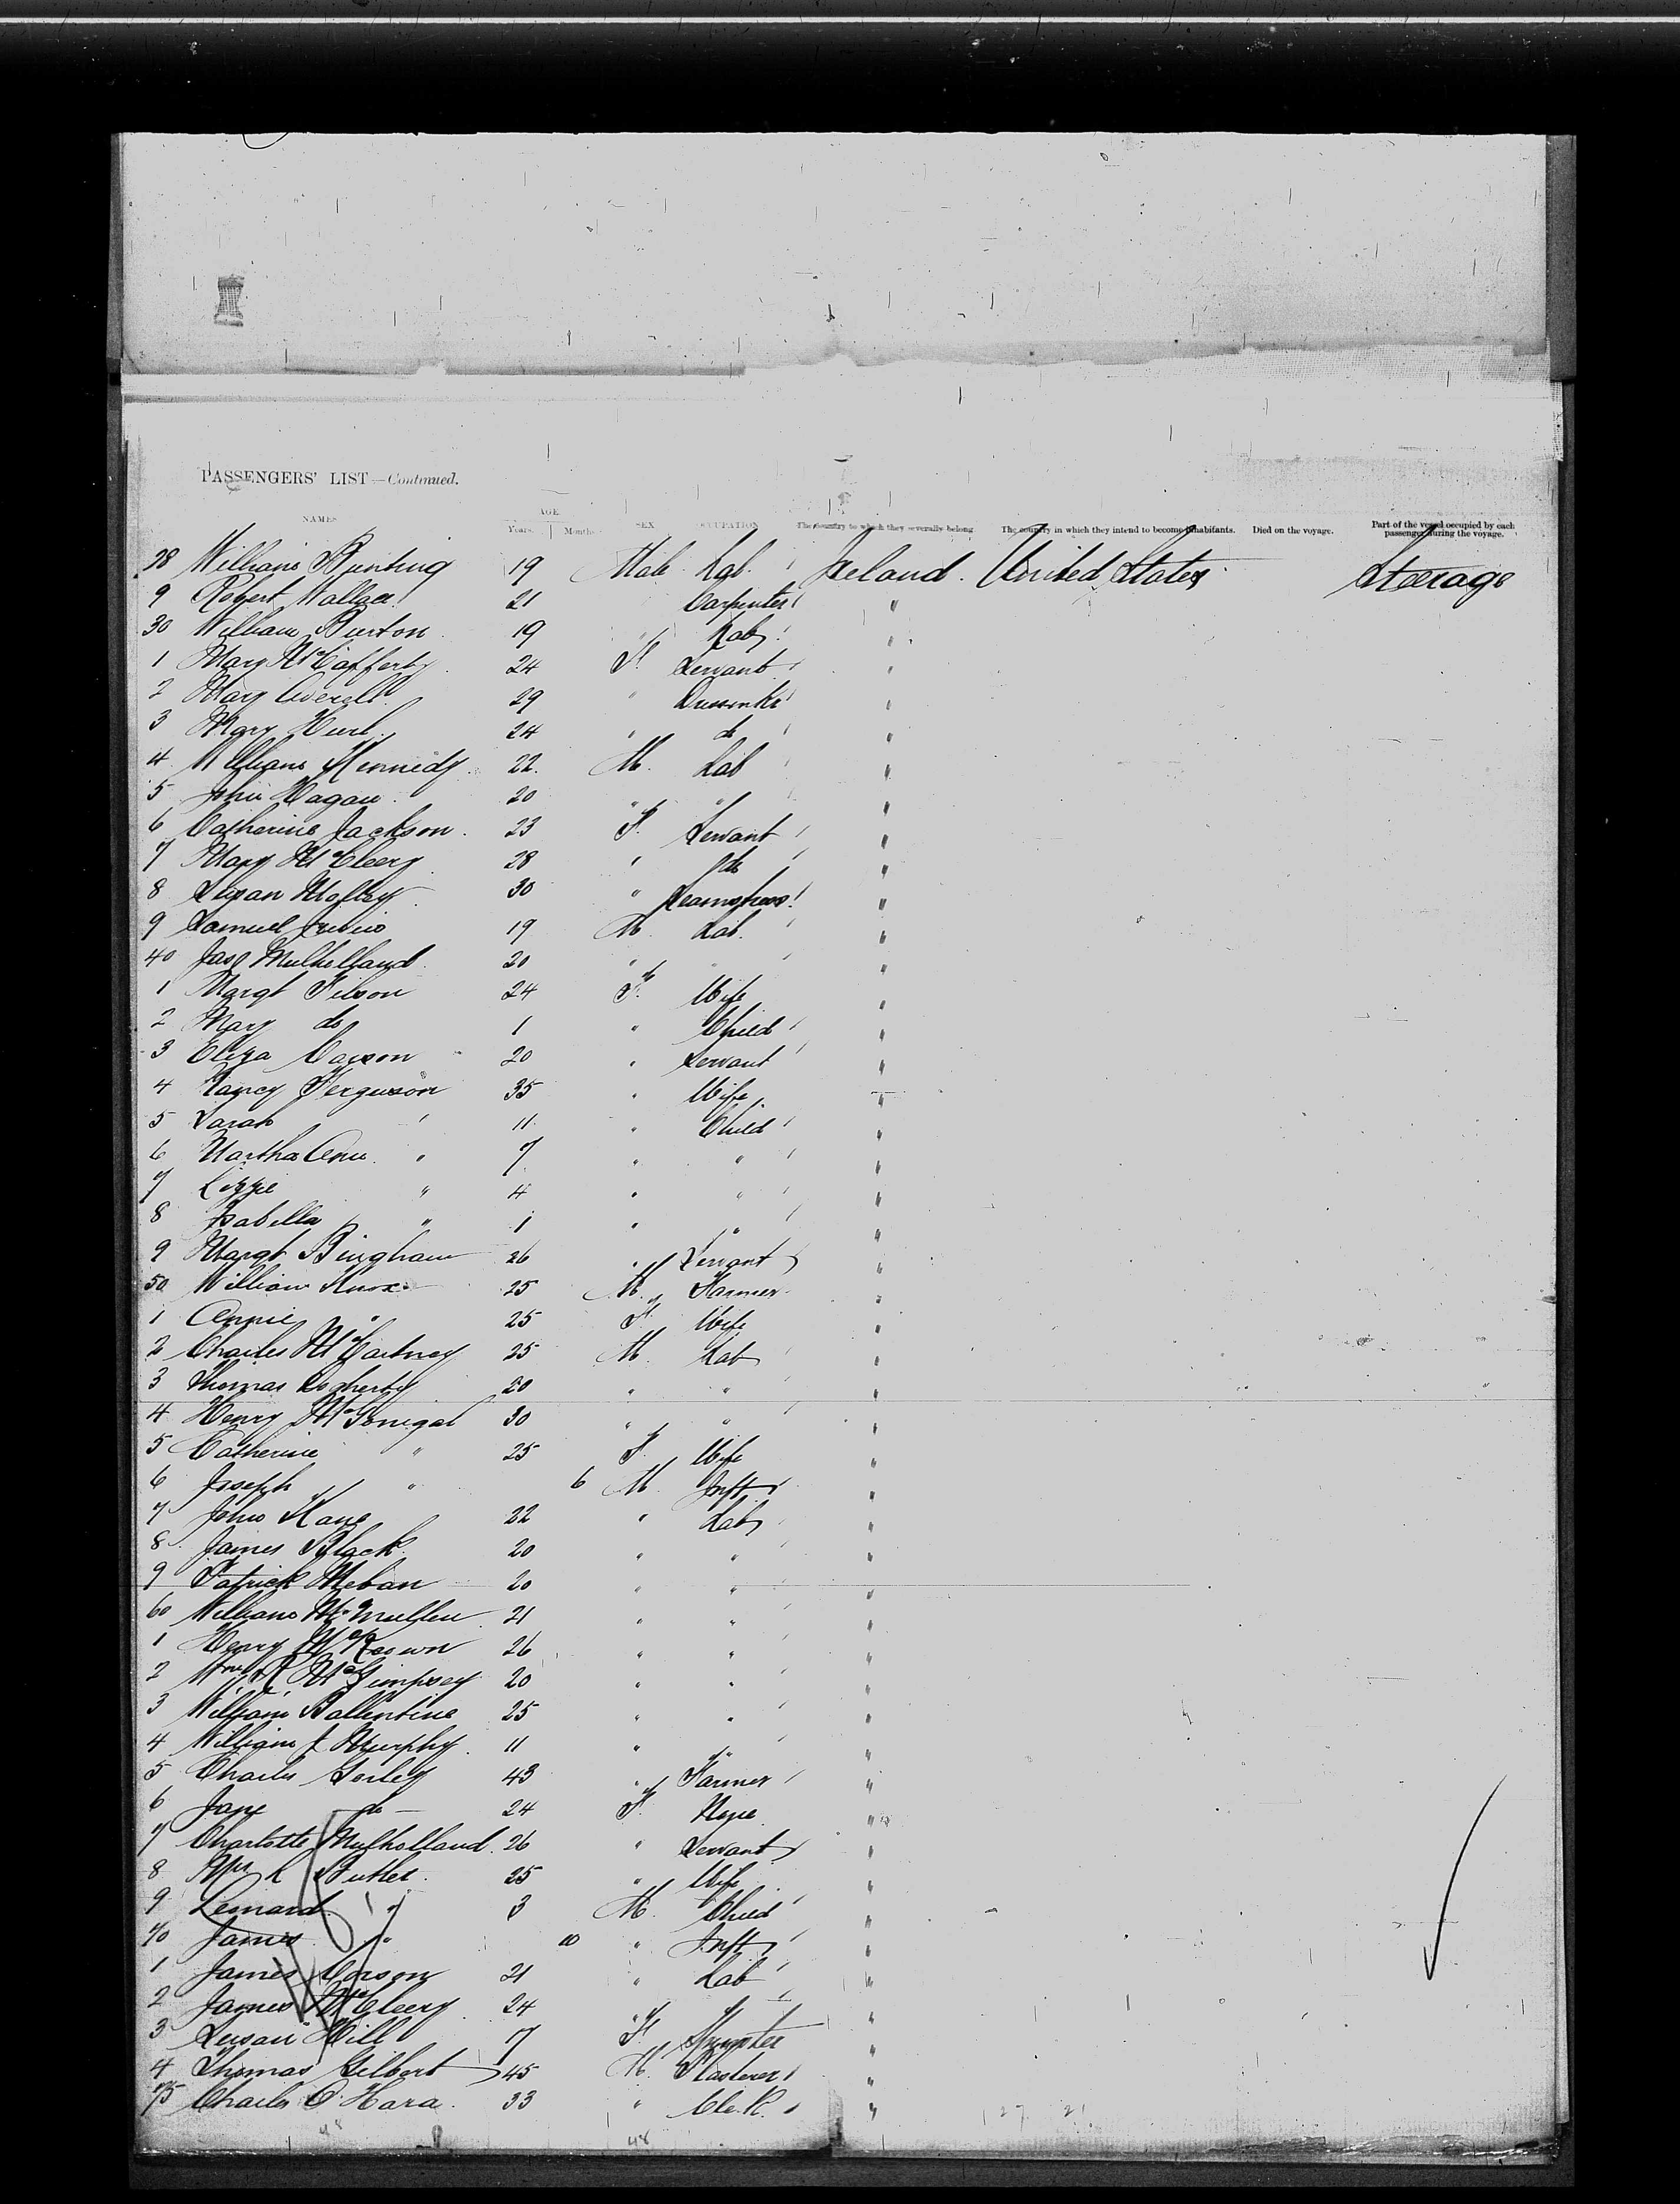 PASSENGERS' LIST—Continued.
NAMES AGE Years. Months SEX OCCUPATION The country to which they severally belong The country in which they intend to become inhabitants. Died on the voyage. Part of the vessel occupied by each passenger during the voyage.
28 William Bunting 19 Male Lab. Ireland. United States Steerage
9 Robert Wallace 21 Carpenter "
30 William Burton 19 " Lab. "
1 Mary McCafferty 24 F. Servant "
2 Mary Averell 29 " "
3 Mary Hurl 24 " do "
4 William Kennedy 22 M. Lab "
5 John Hagan 20 " " "
6 Catherine Jackson 23 F. Servant "
7 Mary McCleery 28 " do "
8 Susan Molloy 30 " Seamstress "
9 Samuel 19 M. Lab. "
40 Jas Mulholland 20 " " "
1 Margt Filson 24 F. Wife "
2 Mary do 1 " Child "
3 Eliza Carson 20 " Servant "
4 Nancy Ferguson 35 " Wife "
5 Sarah " 11 " Child "
6 Martha Ann " 7 " " "
7 Lizzie " 4 " " "
8 Isabella " 1 " " "
9 Margt Bingham 26 " Servant "
50 William Knox 25 M. Farmer "
1 Annie " 25 F. Wife "
2 Charles McCartney 25 M. Lab "
3 Thomas Doherty 20 " " "
4 Henry McGonigal 30 " " "
5 Catherine " 25 F. Wife "
6 Joseph " 6 M. Inft "
7 John Kane 22 " Lab "
8 James Black 20 " " "
9 Patrick Meban 20 " " "
60 William McMullen 21 " " "
1 Henry McKeown 26 " " "
2 Wm R McGimpsey 20 " " "
3 William Ballentine 25 " " "
4 William J Murphy 11 " " "
5 Charles Sorley 43 " Farmer "
6 Jane do 24 F. "
7 Charlotte Mulholland 26 " Servant "
8 Mrs R Butler 25 " Wife "
9 Lenard " 3 M. Child "
70 James " 10 " Inft "
1 James Carson 21 " Lab "
2 James McCleery 24 " " "
3 Susan Hill 17 F. Spinster "
4 Thomas Gilbert 45 M. Plasterer "
75 Charles O'Hara 33 " Clerk "
48 48